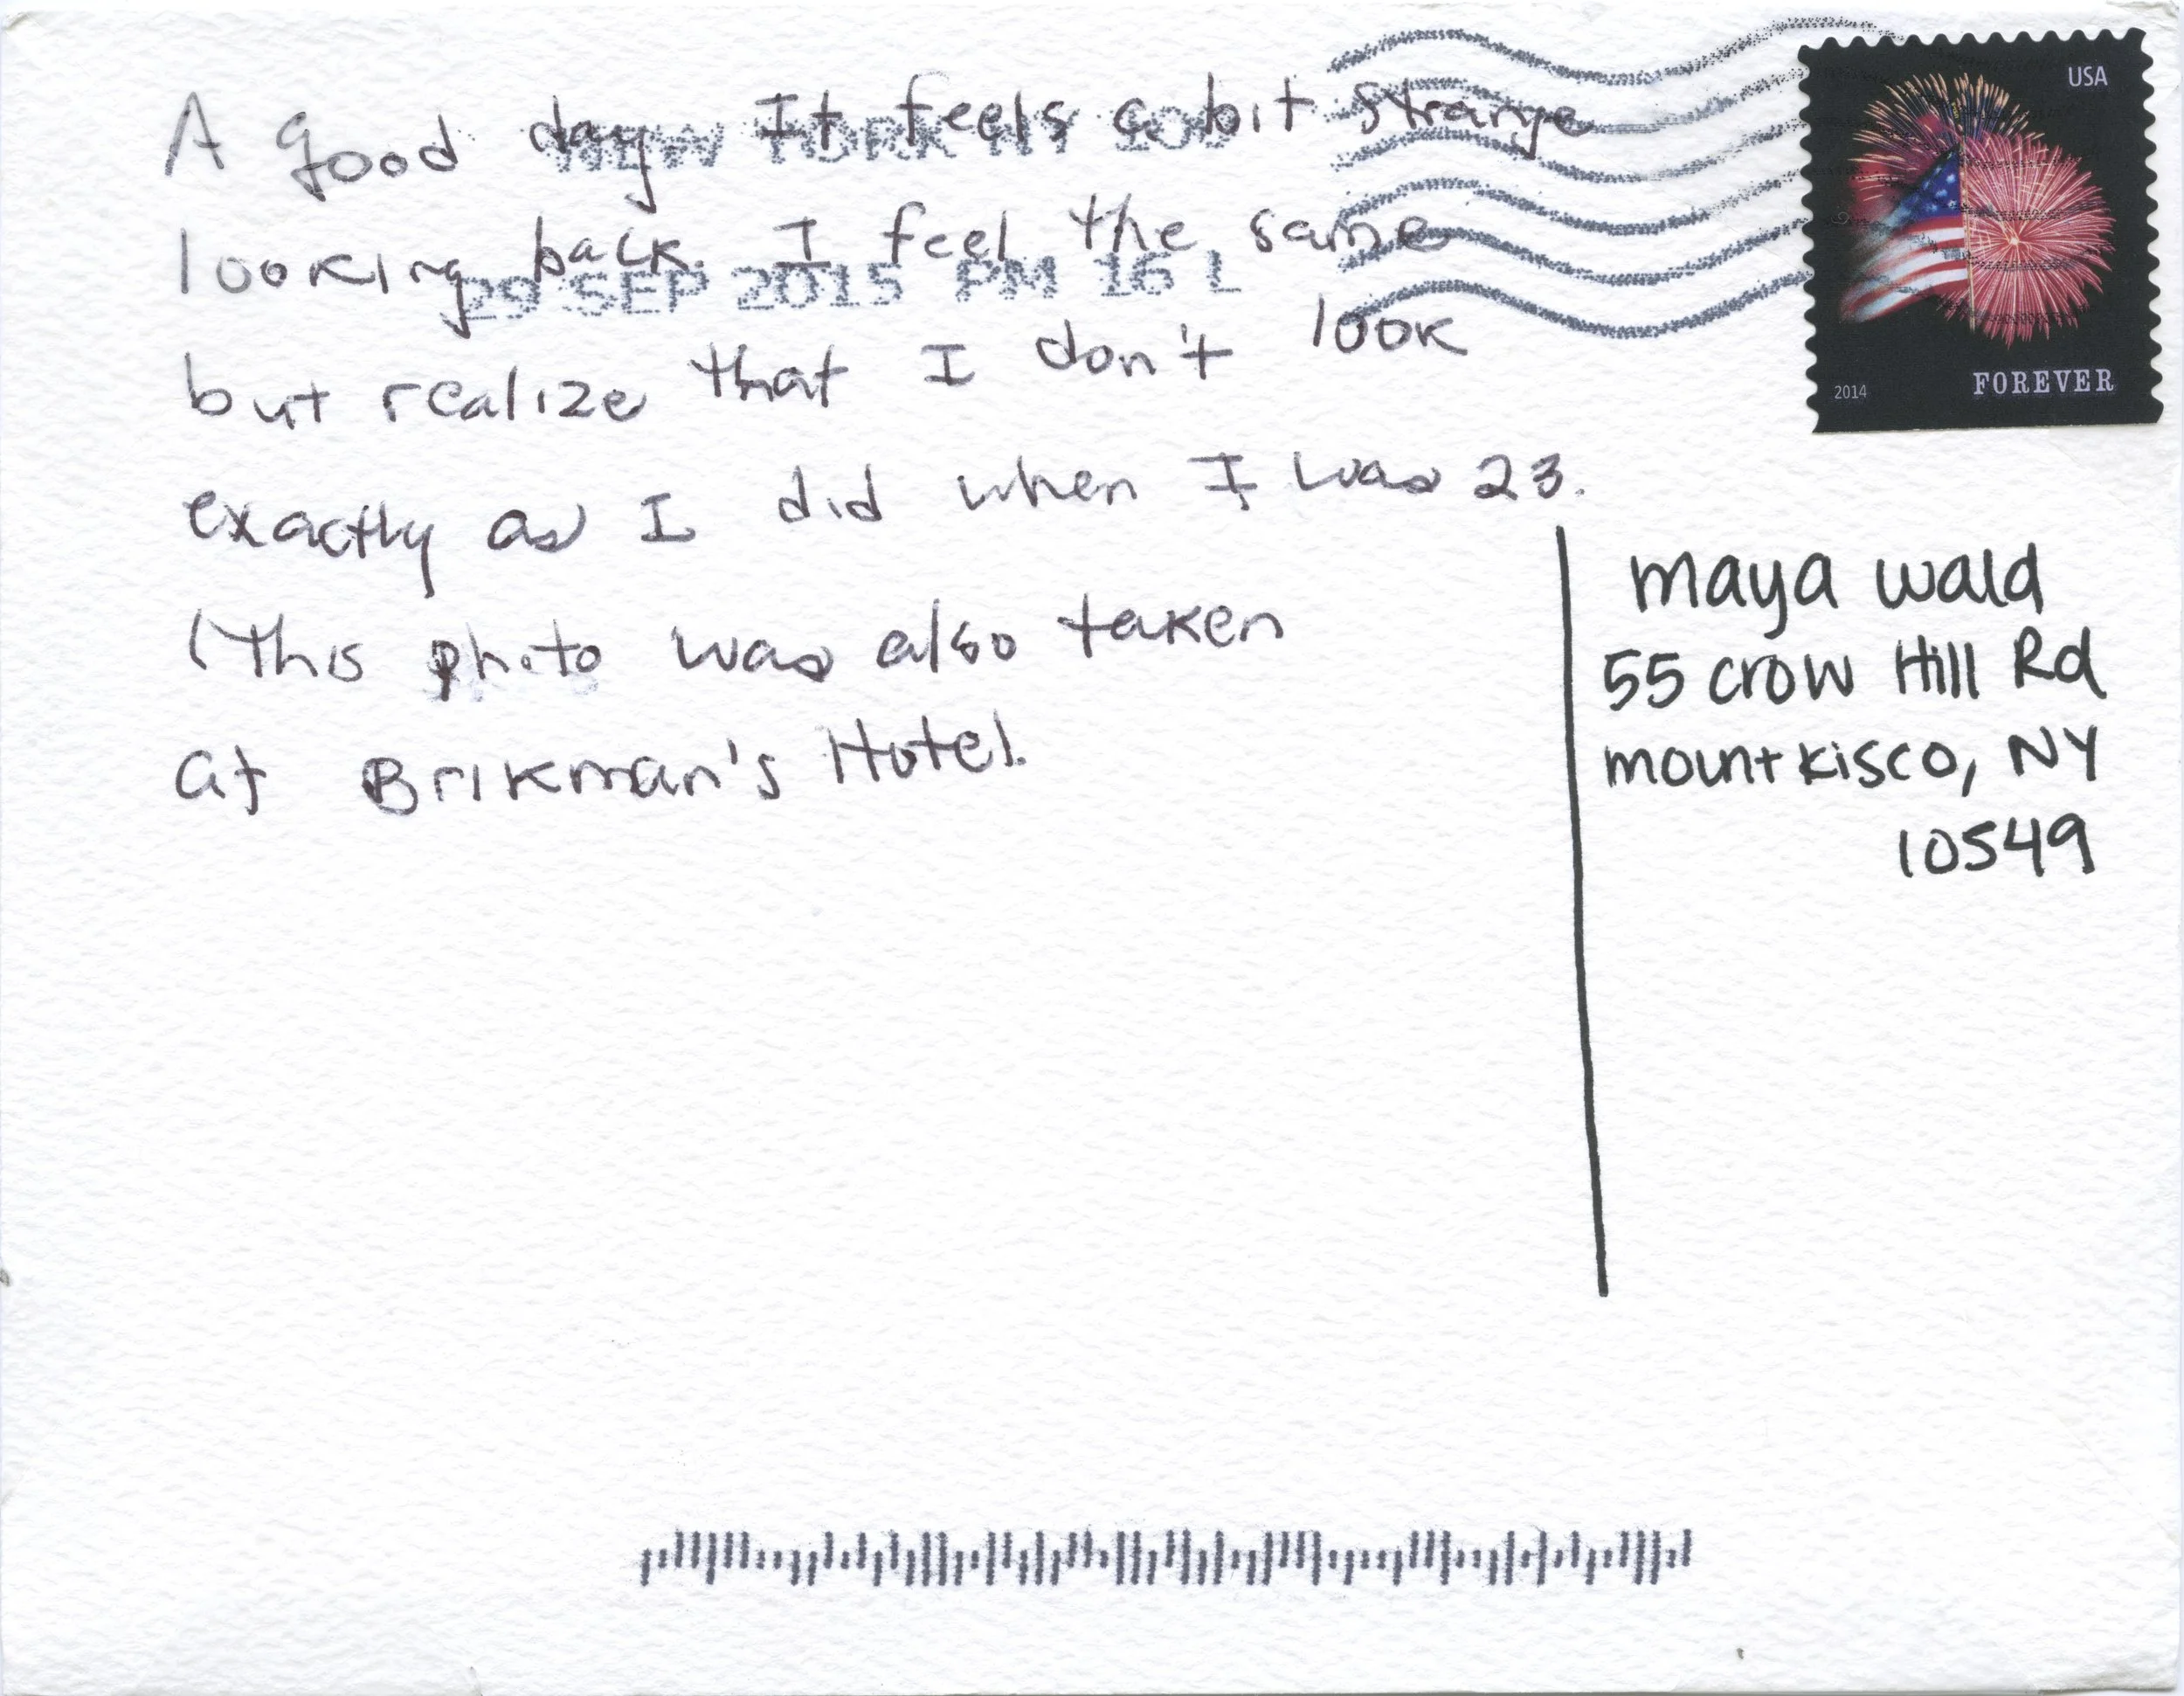 A good day. It feels a bit strange
looking back. I feel the same
but realize that I don't look
exactly as I did when I was 23.
(This photo was also taken
at Brikman's Hotel.
NEW YORK NY 100
29 SEP 2015 PM 16 L
USA
2014 FOREVER
maya wald
55 crow Hill Rd
mount kisco, NY
10549